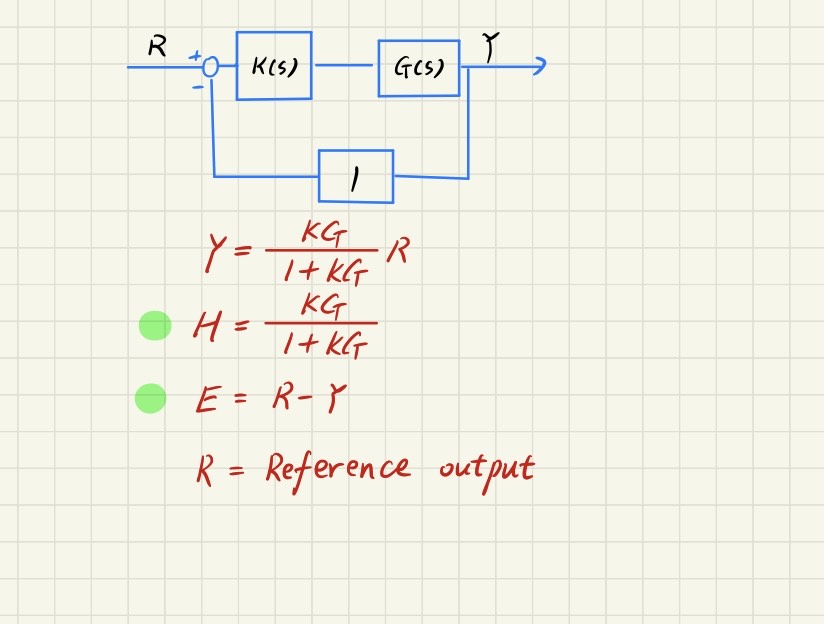 R + K(s) G(s) Y
-
1
Y = KG / 1 + KG R
H = KG / 1 + KG
E = R - Y
R = Reference output